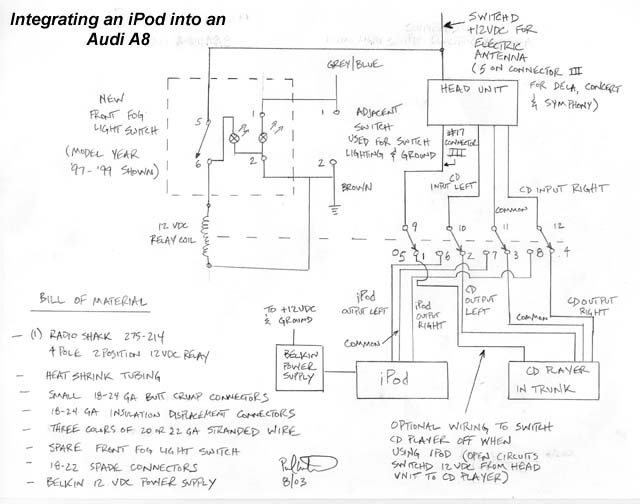 Integrating an iPod into an
Audi A8
SWITCHD
+12VDC FOR
ELECTRIC
ANTENNA
(5 ON CONNECTOR III
FOR DELA, CONCERT
& SYMPHONY)
GREY/BLUE
HEAD UNIT
NEW
FRONT FOG
LIGHT SWITCH
(MODEL YEAR
'97-'99 SHOWN)
5
6
1
2
1
2
ADJACENT
SWITCH
USED FOR SWITCH
LIGHTING & GROUND
BROWN
#17
CONNECTOR
III
CD
INPUT LEFT
CD INPUT RIGHT
COMMON
12 VDC
RELAY COIL
9
10
11
12
5
1
6
2
7
3
8
4
iPod
OUTPUT LEFT
iPod
OUTPUT
RIGHT
CD
OUTPUT
LEFT
COMMON
CD OUTPUT
RIGHT
COMMON
TO +12VDC
& GROUND
BELKIN
POWER
SUPPLY
iPod
CD PLAYER
IN TRUNK
BILL OF MATERIAL
- (1) RADIO SHACK 275-214
4 POLE 2 POSITION 12VDC RELAY
- HEAT SHRINK TUBING
- SMALL 18-24 GA BUTT CRIMP CONNECTORS
- 18-24 GA INSULATION DISPLACEMENT CONNECTORS
- THREE COLORS OF 20 OR 22 GA STRANDED WIRE
- SPARE FRONT FOG LIGHT SWITCH
- 18-22 SPADE CONNECTORS
- BELKIN 12 VDC POWER SUPPLY
8/03
OPTIONAL WIRING TO SWITCH
CD PLAYER OFF WHEN
USING IPOD (OPEN CIRCUITS
SWITCHD 12VDC FROM HEAD
UNIT TO CD PLAYER)